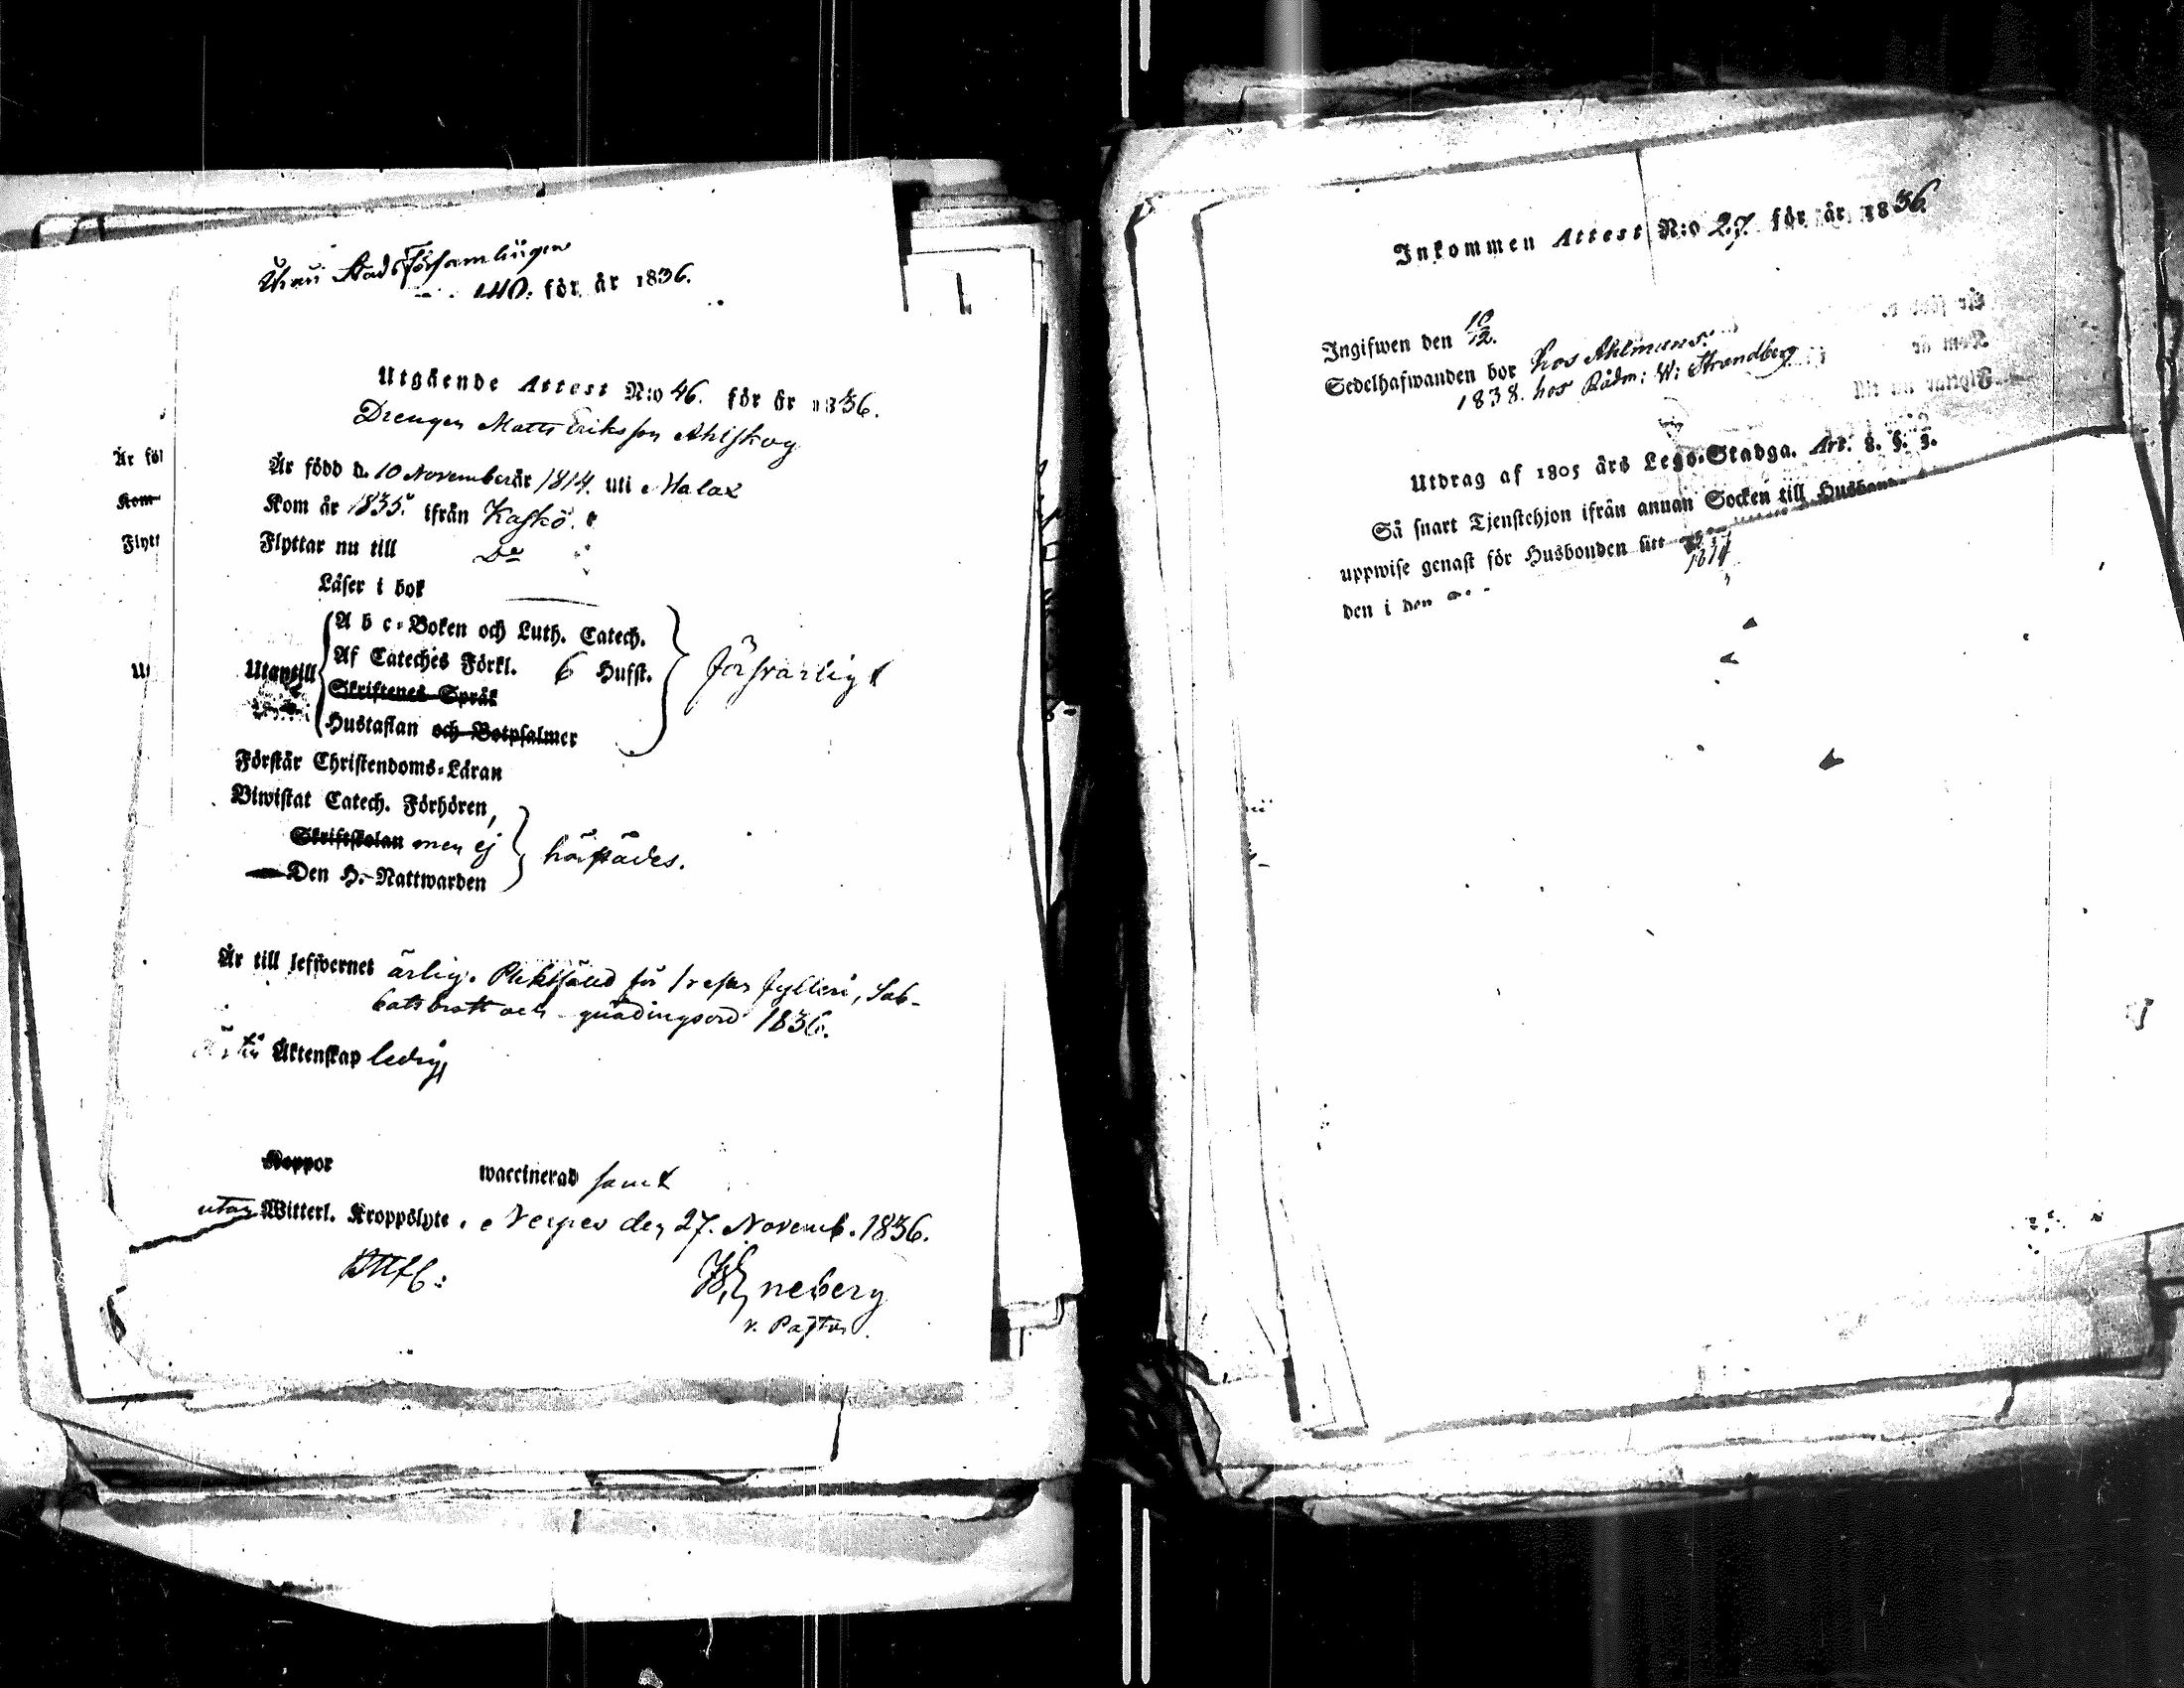 Stads Församlingen
140. för år 1836.
Utgående Attest N:o 46. för år 1836.
Drengen Matts Eriksson Ahlskog
Är född d. 10 November år 1814. uti Malax
Kom år 1835. ifrån Kaskö.
Flyttar nu till Do
Läser i bok
Utantill
A b c-Boken och Luth. Catech.
Af Cateches Förkl. 6 Hufst.
Skriftenes Språk
Hustaflan och Botpsalmer
försvarligt
Förstår Christendoms-Läran
Biwistat Catech. Förhören,
Skriftskolan men ej
Den H. Nattwarden
härstädes.
Är till lefwernet ärlig. Pliktfälld för fylleri, Sab-
batsbrott och 1836.
Äktenskap ledig
Koppor waccinerad samt
utan Witterl. Kroppslyte. Nerpes den 27. Novemb. 1836.
neberg
v. Pastor.
Är föd
Kom
Flytt
Ut
Inkommen Attest N:o 27. för år 1836.
Ingifwen den 10/12.
Sedelhafwanden bor hos Ahlmans.
1838. hos Rådm: W: Strandberg
Utdrag af 1805 års Lego-Stadga. Art. 8. §. 3.
Så snart Tjenstehjon ifrån annan Socken till
uppwise genast för Husbonden sitt
1814
den i den